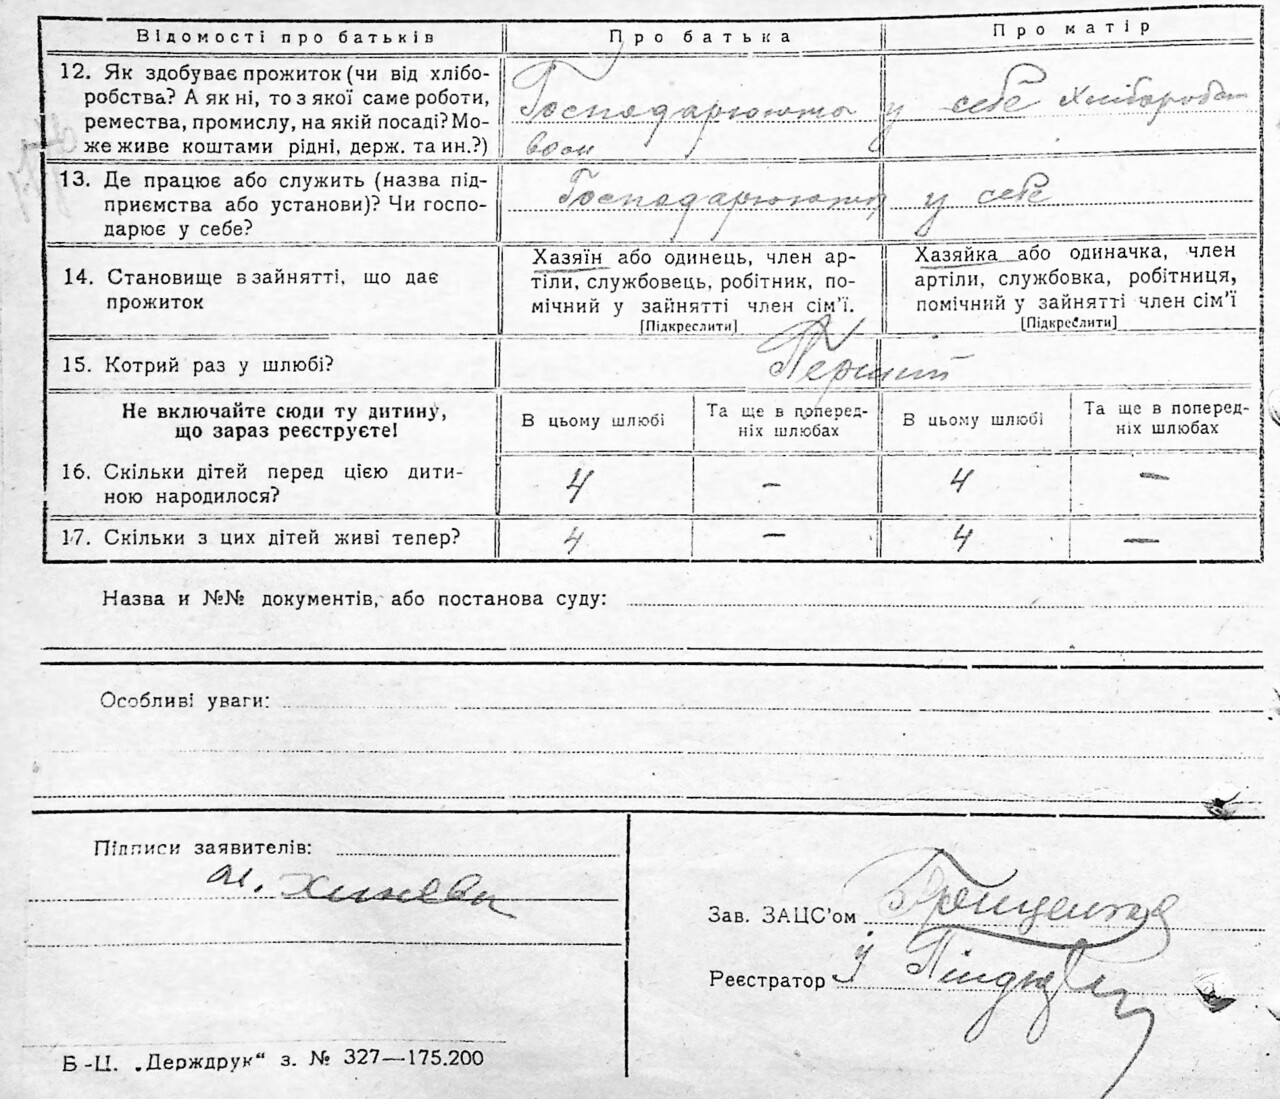 Відомості про батьків Про батька Про матір
12. Як здобуває прожиток (чи від хлібо-
робства? А як ні, то з якої саме роботи,
ремества, промислу, на якій посаді? Мо-
же живе коштами рідні, держ. та ин.?)
Господарюють у себе Хліборобст
вом
13. Де працює або служить (назва під-
приємства або установи)? Чи госпо-
дарює у себе?
Господарюють у себе
14. Становище в зайнятті, що дає
прожиток
Хазяїн або одинець, член ар-
тіли, службовець, робітник, по-
мічний у зайнятті член сім'ї.
[Підкреслити]
Хазяйка або одиначка, член
артіли, службовка, робітниця,
помічний у зайнятті член сім'ї
[Підкреслити]
15. Котрий раз у шлюбі?
Перший
Не включайте сюди ту дитину,
що зараз реєструєте!
В цьому шлюбі
Та ще в поперед-
ніх шлюбах
В цьому шлюбі
Та ще в поперед-
ніх шлюбах
16. Скільки дітей перед цією дити-
ною народилося?
4 – 4 –
17. Скільки з цих дітей живі тепер?
4 – 4 –
Назва и №№ документів, або постанова суду:
Особливі уваги:
Підписи заявителів:
Зав. ЗАЦС'ом
Реєстратор
Б-Ц. „Держдрук“ з. № 327—175.200